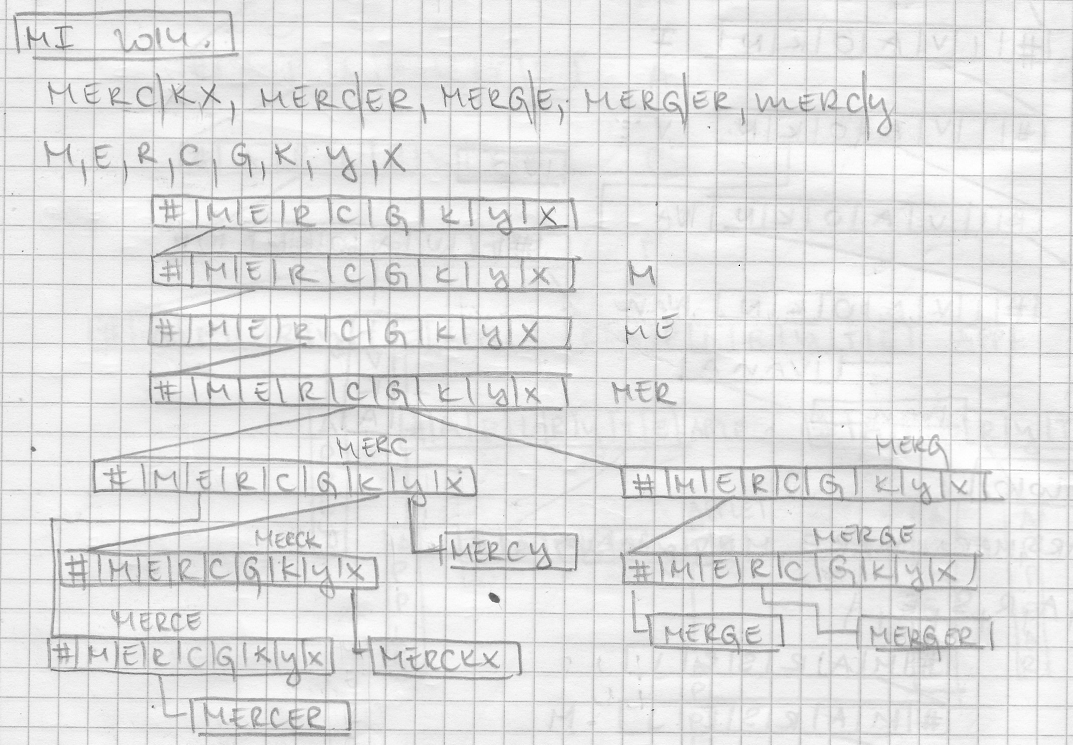 MI 2014.
MERC|KX, MERC|ER, MERG|E, MERG|ER, MERC|Y
M, E, R, C, G, K, Y, X
#|M|E|R|C|G|K|Y|X
#|M|E|R|C|G|K|Y|X M
#|M|E|R|C|G|K|Y|X ME
#|M|E|R|C|G|K|Y|X MER
MERC MERG
#|M|E|R|C|G|K|Y|X #|M|E|R|C|G|K|Y|X
MERCK MERCY MERGE
#|M|E|R|C|G|K|Y|X #|M|E|R|C|G|K|Y|X
MERCE MERGE MERGER
#|M|E|R|C|G|K|Y|X MERCKX
MERCER